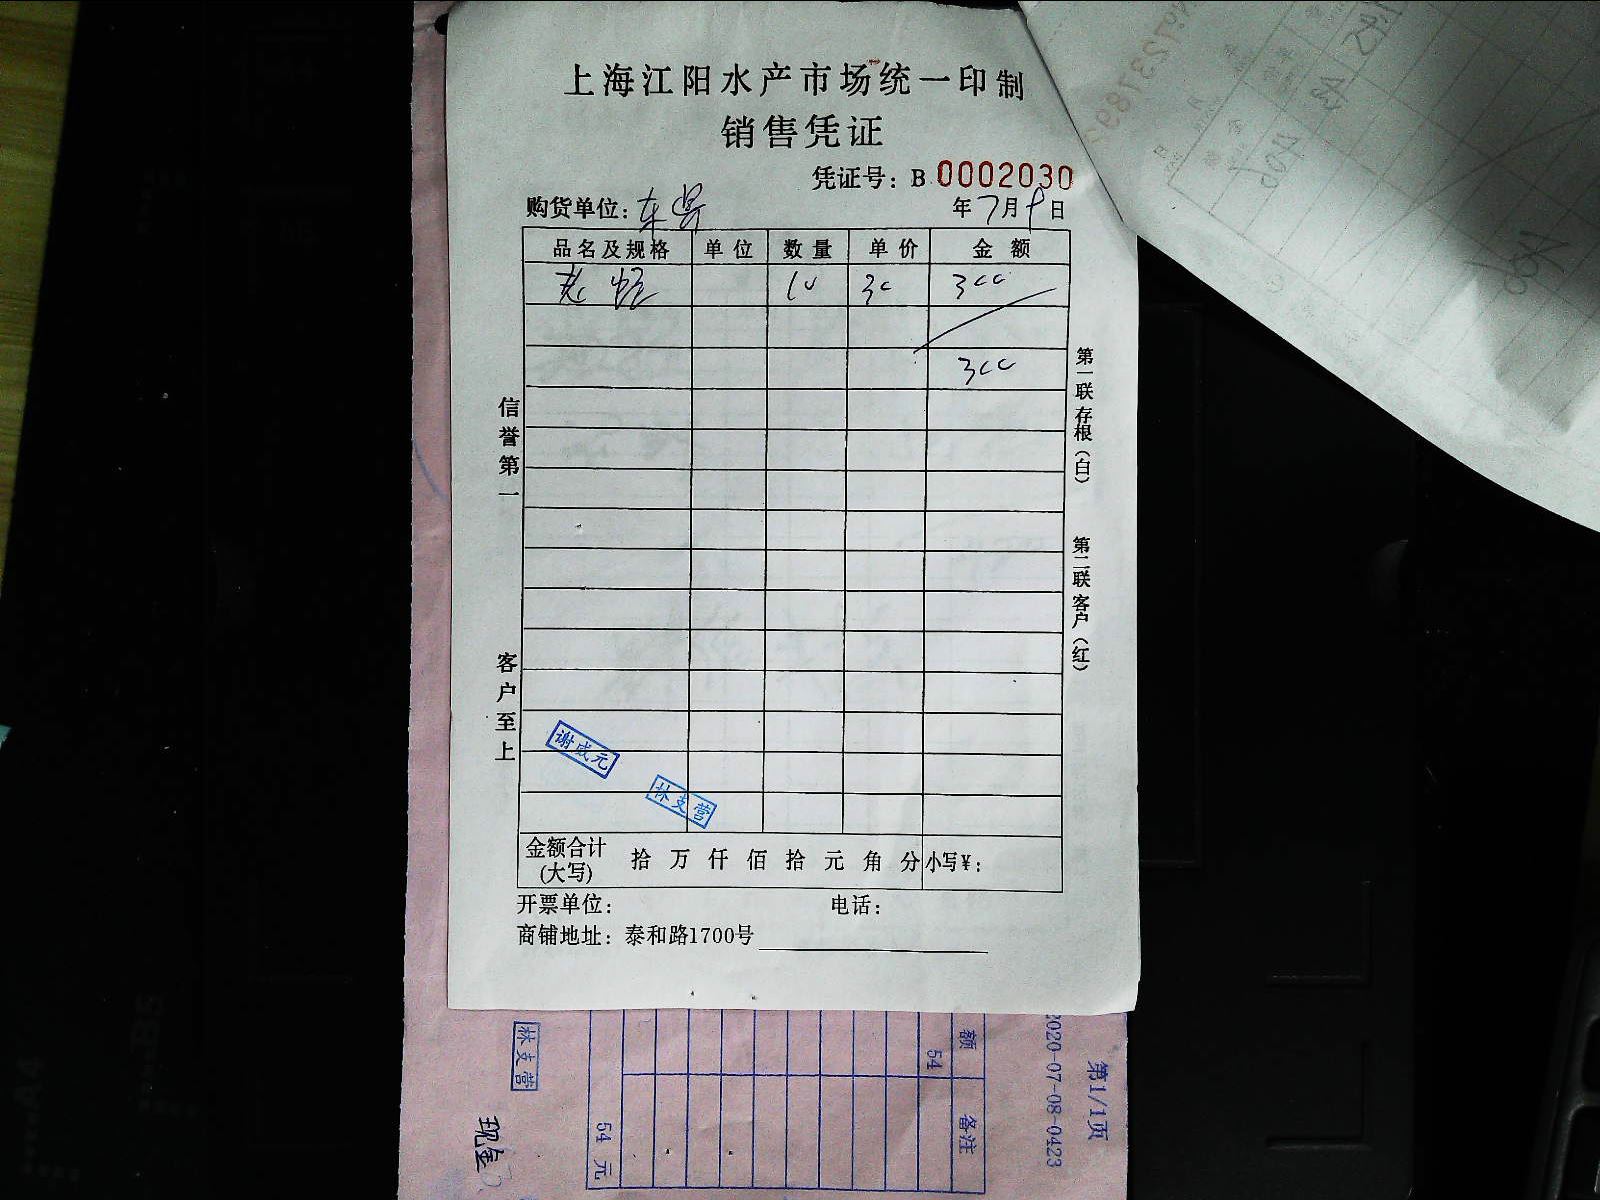 上海江阳水产市场统一印制
销售凭证
凭证号：B 0002030
购货单位：东
年7月9日
品名及规格 单位 数量 单价 金额
老 10 30 300
300
信誉第一
客户至上
第一联存根（白）
第二联客户（红）
谢成元
林支营
金额合计（大写） 拾 万 仟 佰 拾 元 角 分 小写¥：
开票单位： 电话：
商铺地址：泰和路1700号
林支营
现金
额 备注
54
54 元
2020-07-08-0423
第1/1页